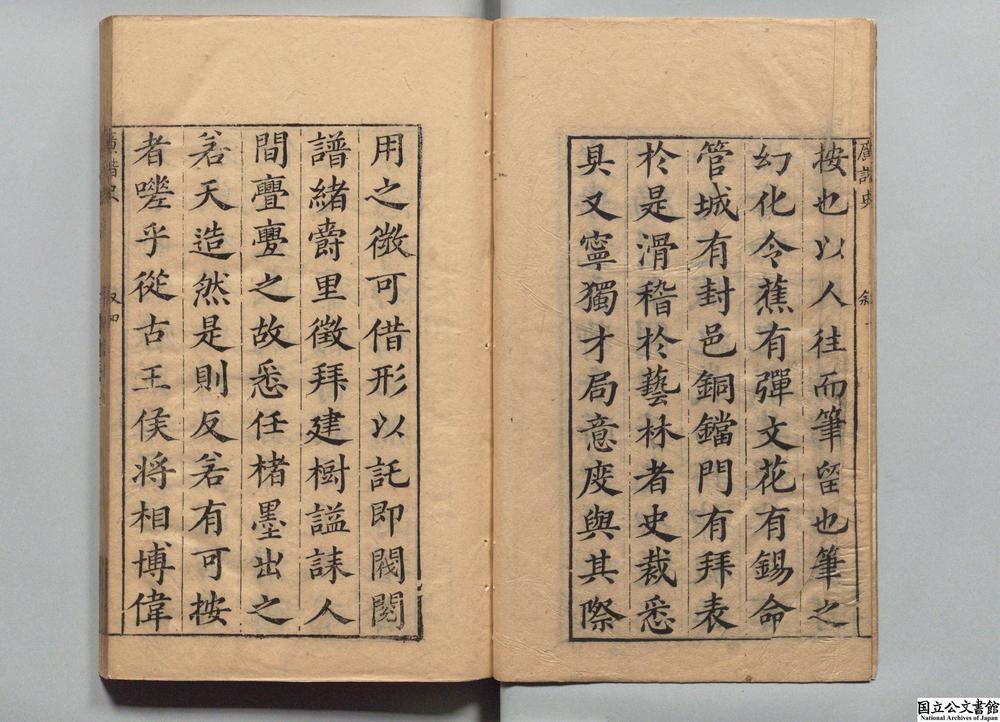 廣諧史 敘
按也以人往而筆留也筆之
幻化令蕉有彈文花有錫命
管城有封邑銅鐺門有拜表
於是滑稽於藝林者史裁悉
具又寧獨才局意度與其際
用之徴可借形以託即閥閱
譜緒爵里徵拜建樹謚誄人
間亹亹之故悉任楮墨出之
若天造然是則反若有可按
者嗟乎從古王侯将相博偉
廣諧史 敘四
国立公文書館
National Archives of Japan